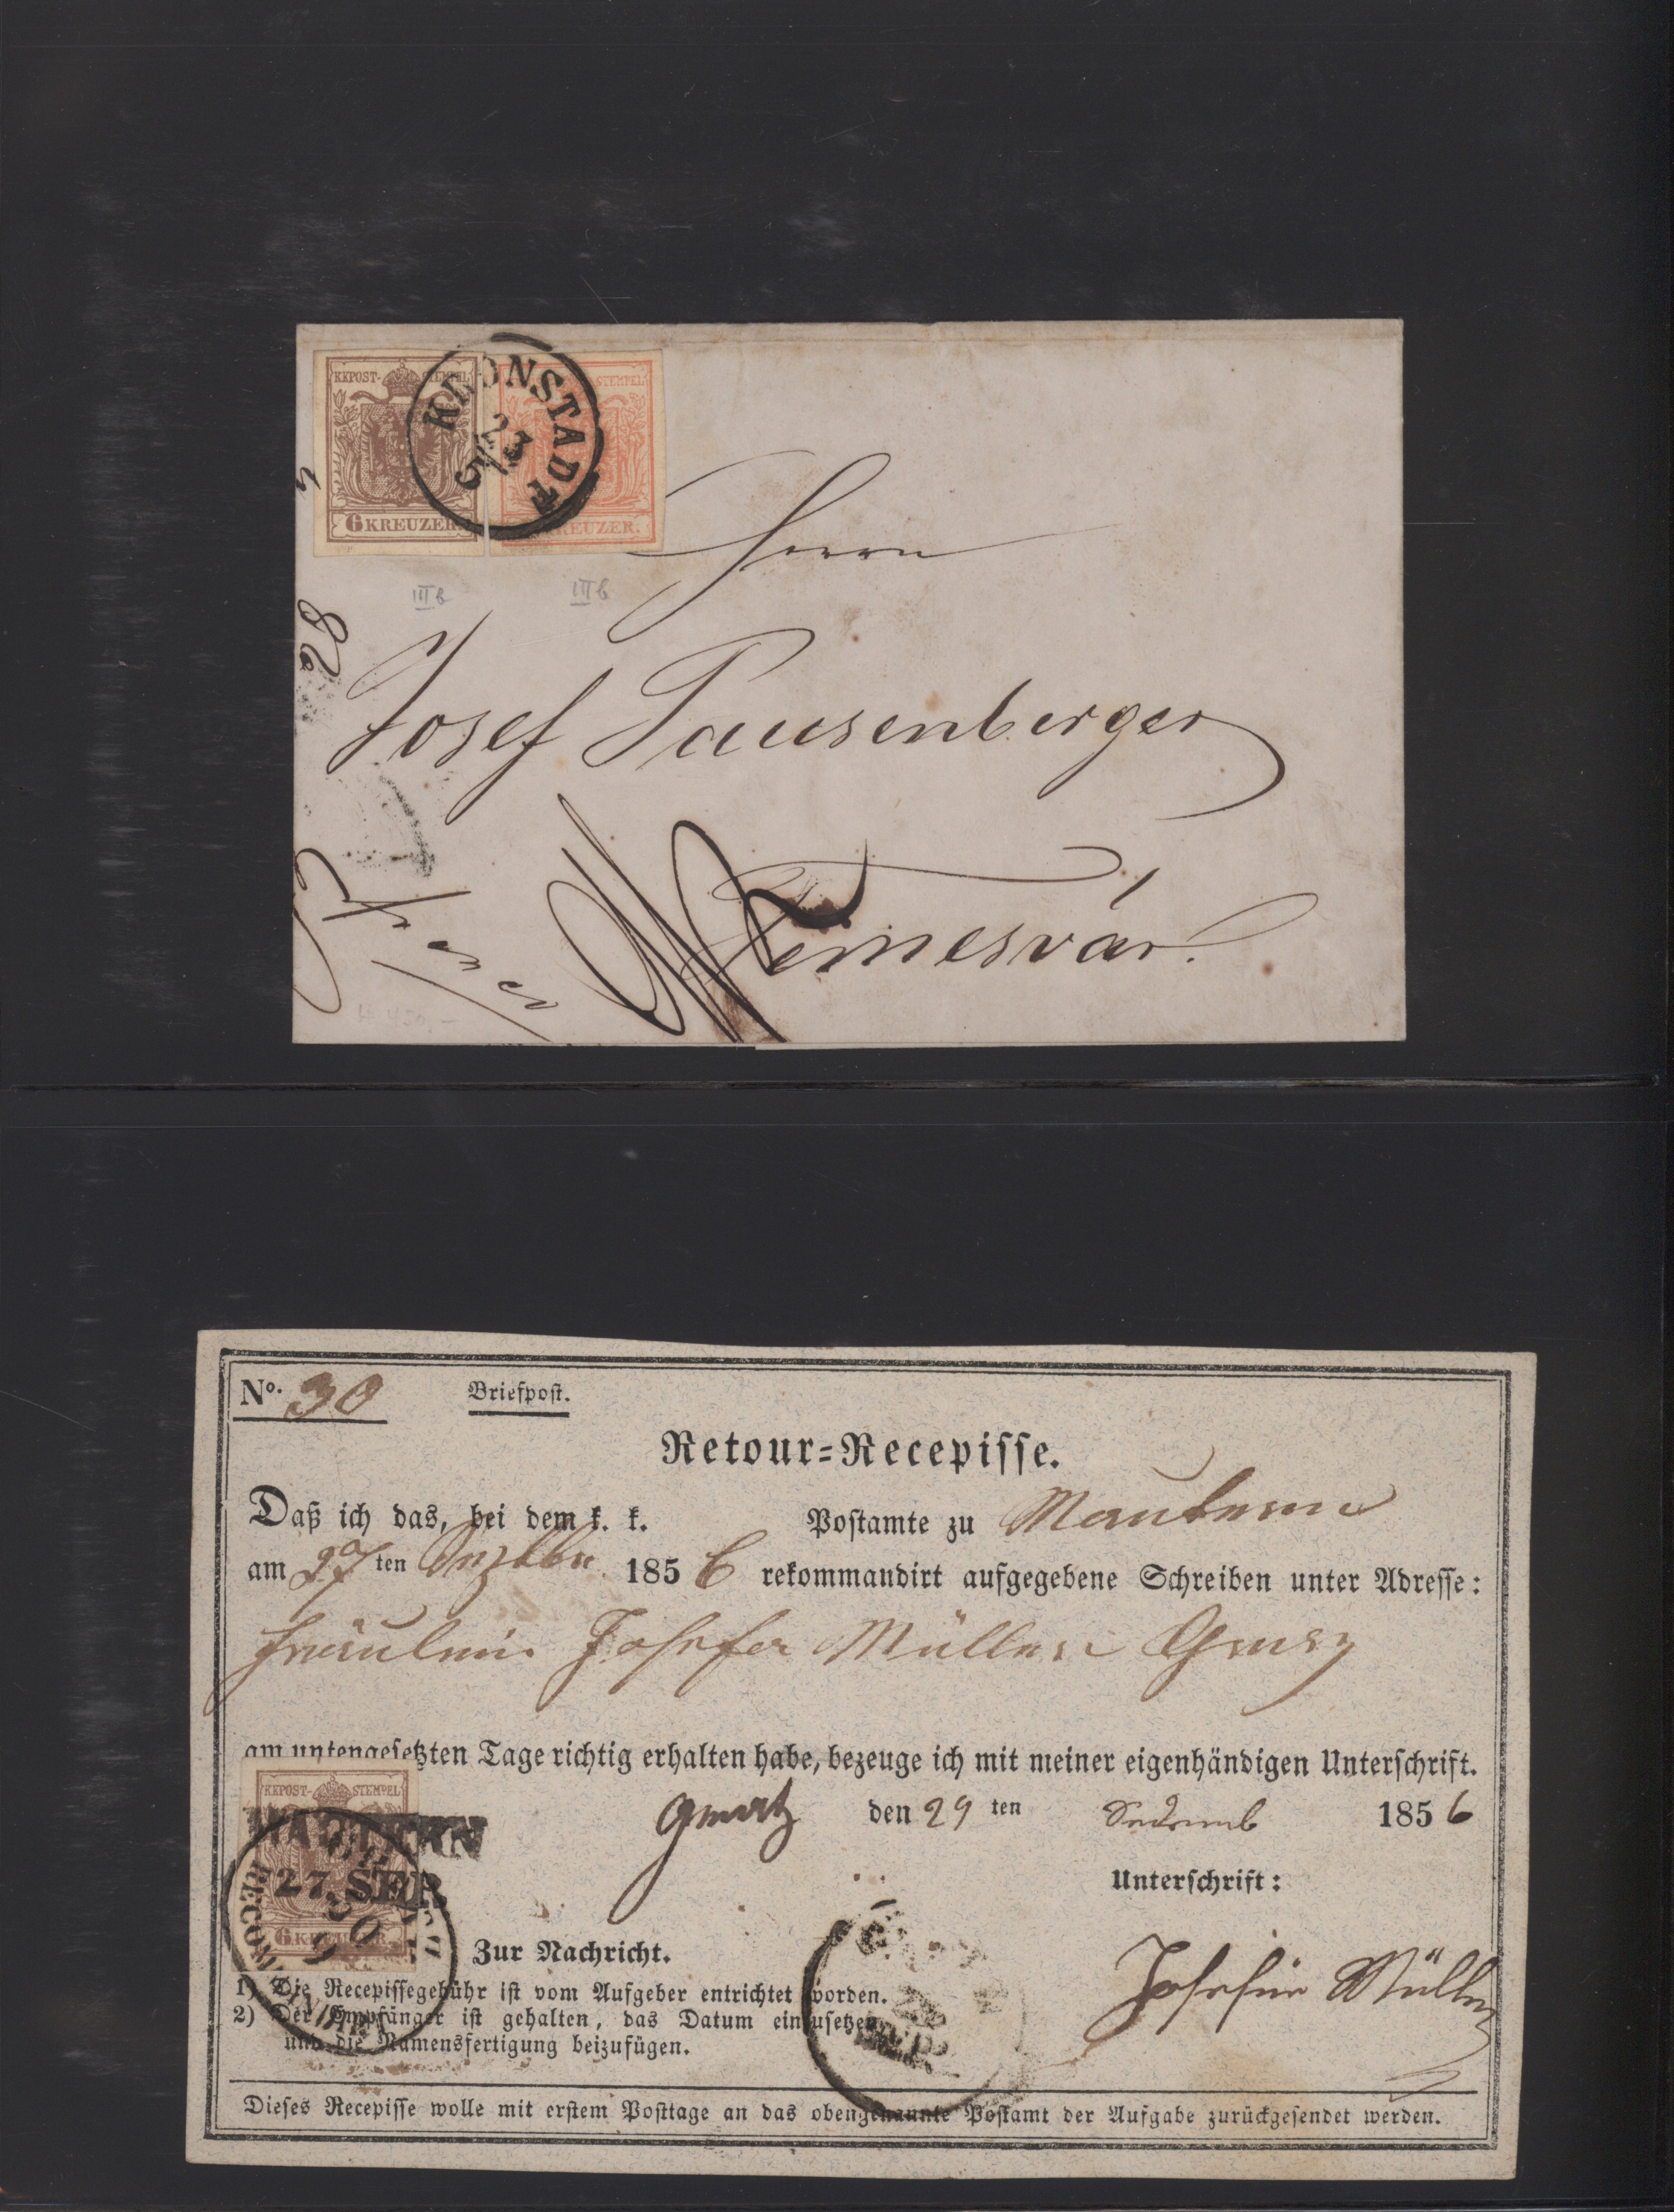 KKPOST-STEMPEL
6 KREUZER.
STEMPEL
KREUZER.
KRONSTADT
23
5
III b
III b
28
Herrn
Josef Pausenberger
Temesvár.
No. 30
Briefpost.
Retour=Recepisse.
Daß ich das, bei dem k. k. Postamte zu Mautern
am 27 ten 1856 rekommandirt aufgegebene Schreiben unter Adresse:
Fräulein Josefa Müller Gratz
am untengesetzten Tage richtig erhalten habe, bezeuge ich mit meiner eigenhändigen Unterschrift.
Gratz den 29 ten 1856
KKPOST-STEMPEL
MAUTERN
27. SEP.
RECOMMANDIRT
30
9
6 KREUZER.
Unterschrift:
Josefine Müller
Zur Nachricht.
1) Die Recepissegebühr ist vom Aufgeber entrichtet worden.
2) Der Empfänger ist gehalten, das Datum einzusetzen,
und die Namensfertigung beizufügen.
Dieses Recepisse wolle mit erstem Posttage an das obengenannte Postamt der Aufgabe zurückgesendet werden.